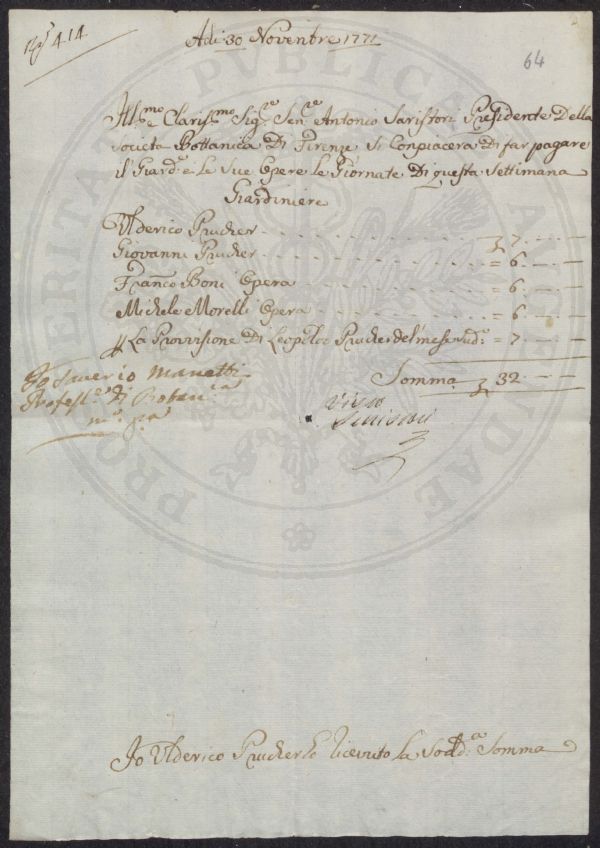 414
Adi 30 Novembre 1771
64
Ill.mo e Clariss.mo Sig.re Sen.re Antonio Saristori Presidente Della
Societa Bottanica Di Firenze, Si Conpiacera Di far pagare
il Giard.e e Le Sue Opere Le Giornate Di questa Settimana
Giardiniere
Ulderico Prucker 7
Giovanni Prucker = 6
Fran.co Boni Opera = 6
Michele Morelli Opera = 6
La Provvisione Di Leopoldo Prucker del mese Sud.o = 7
Somma 32
Io Saverio Manetti
Profess.e Di Botan.ica
m.o p.a
Visto
Io Ulderico Prucker ho ricevuto La Sodd.a Somma
PROSPERITATI PUBLICAE AUGENDAE